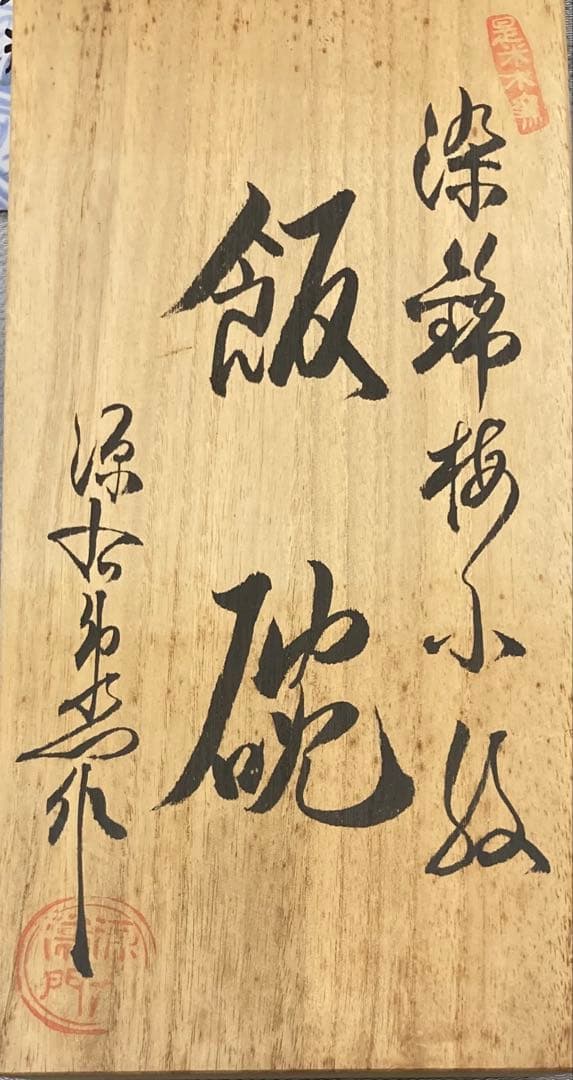 染錦梅小紋
飯碗
源右衛門窯作
源右衛門